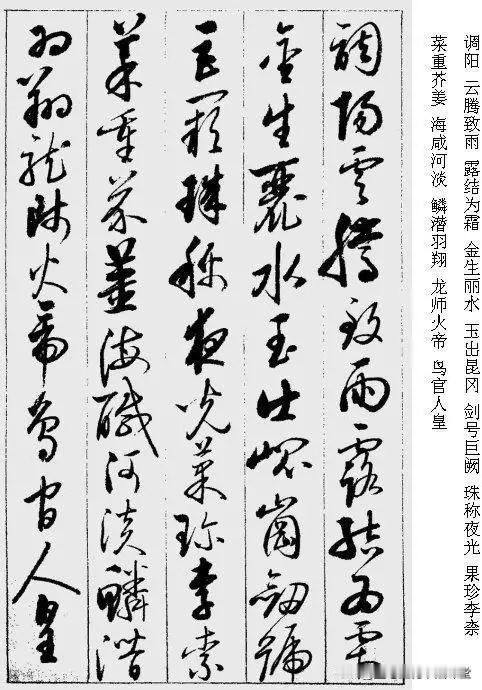 调阳 云腾致雨 露结为霜 金生丽水 玉出昆冈 剑号巨阙 珠称夜光 果珍李柰
菜重芥姜 海咸河淡 鳞潜羽翔 龙师火帝 鸟官人皇
調陽雲騰致雨露結為霜
金生麗水玉出崐崗劒號
巨闕珠稱夜光菓珍李柰
菜重芥薑海醎河淡鱗潛
羽翔龍師火帝鳥官人皇